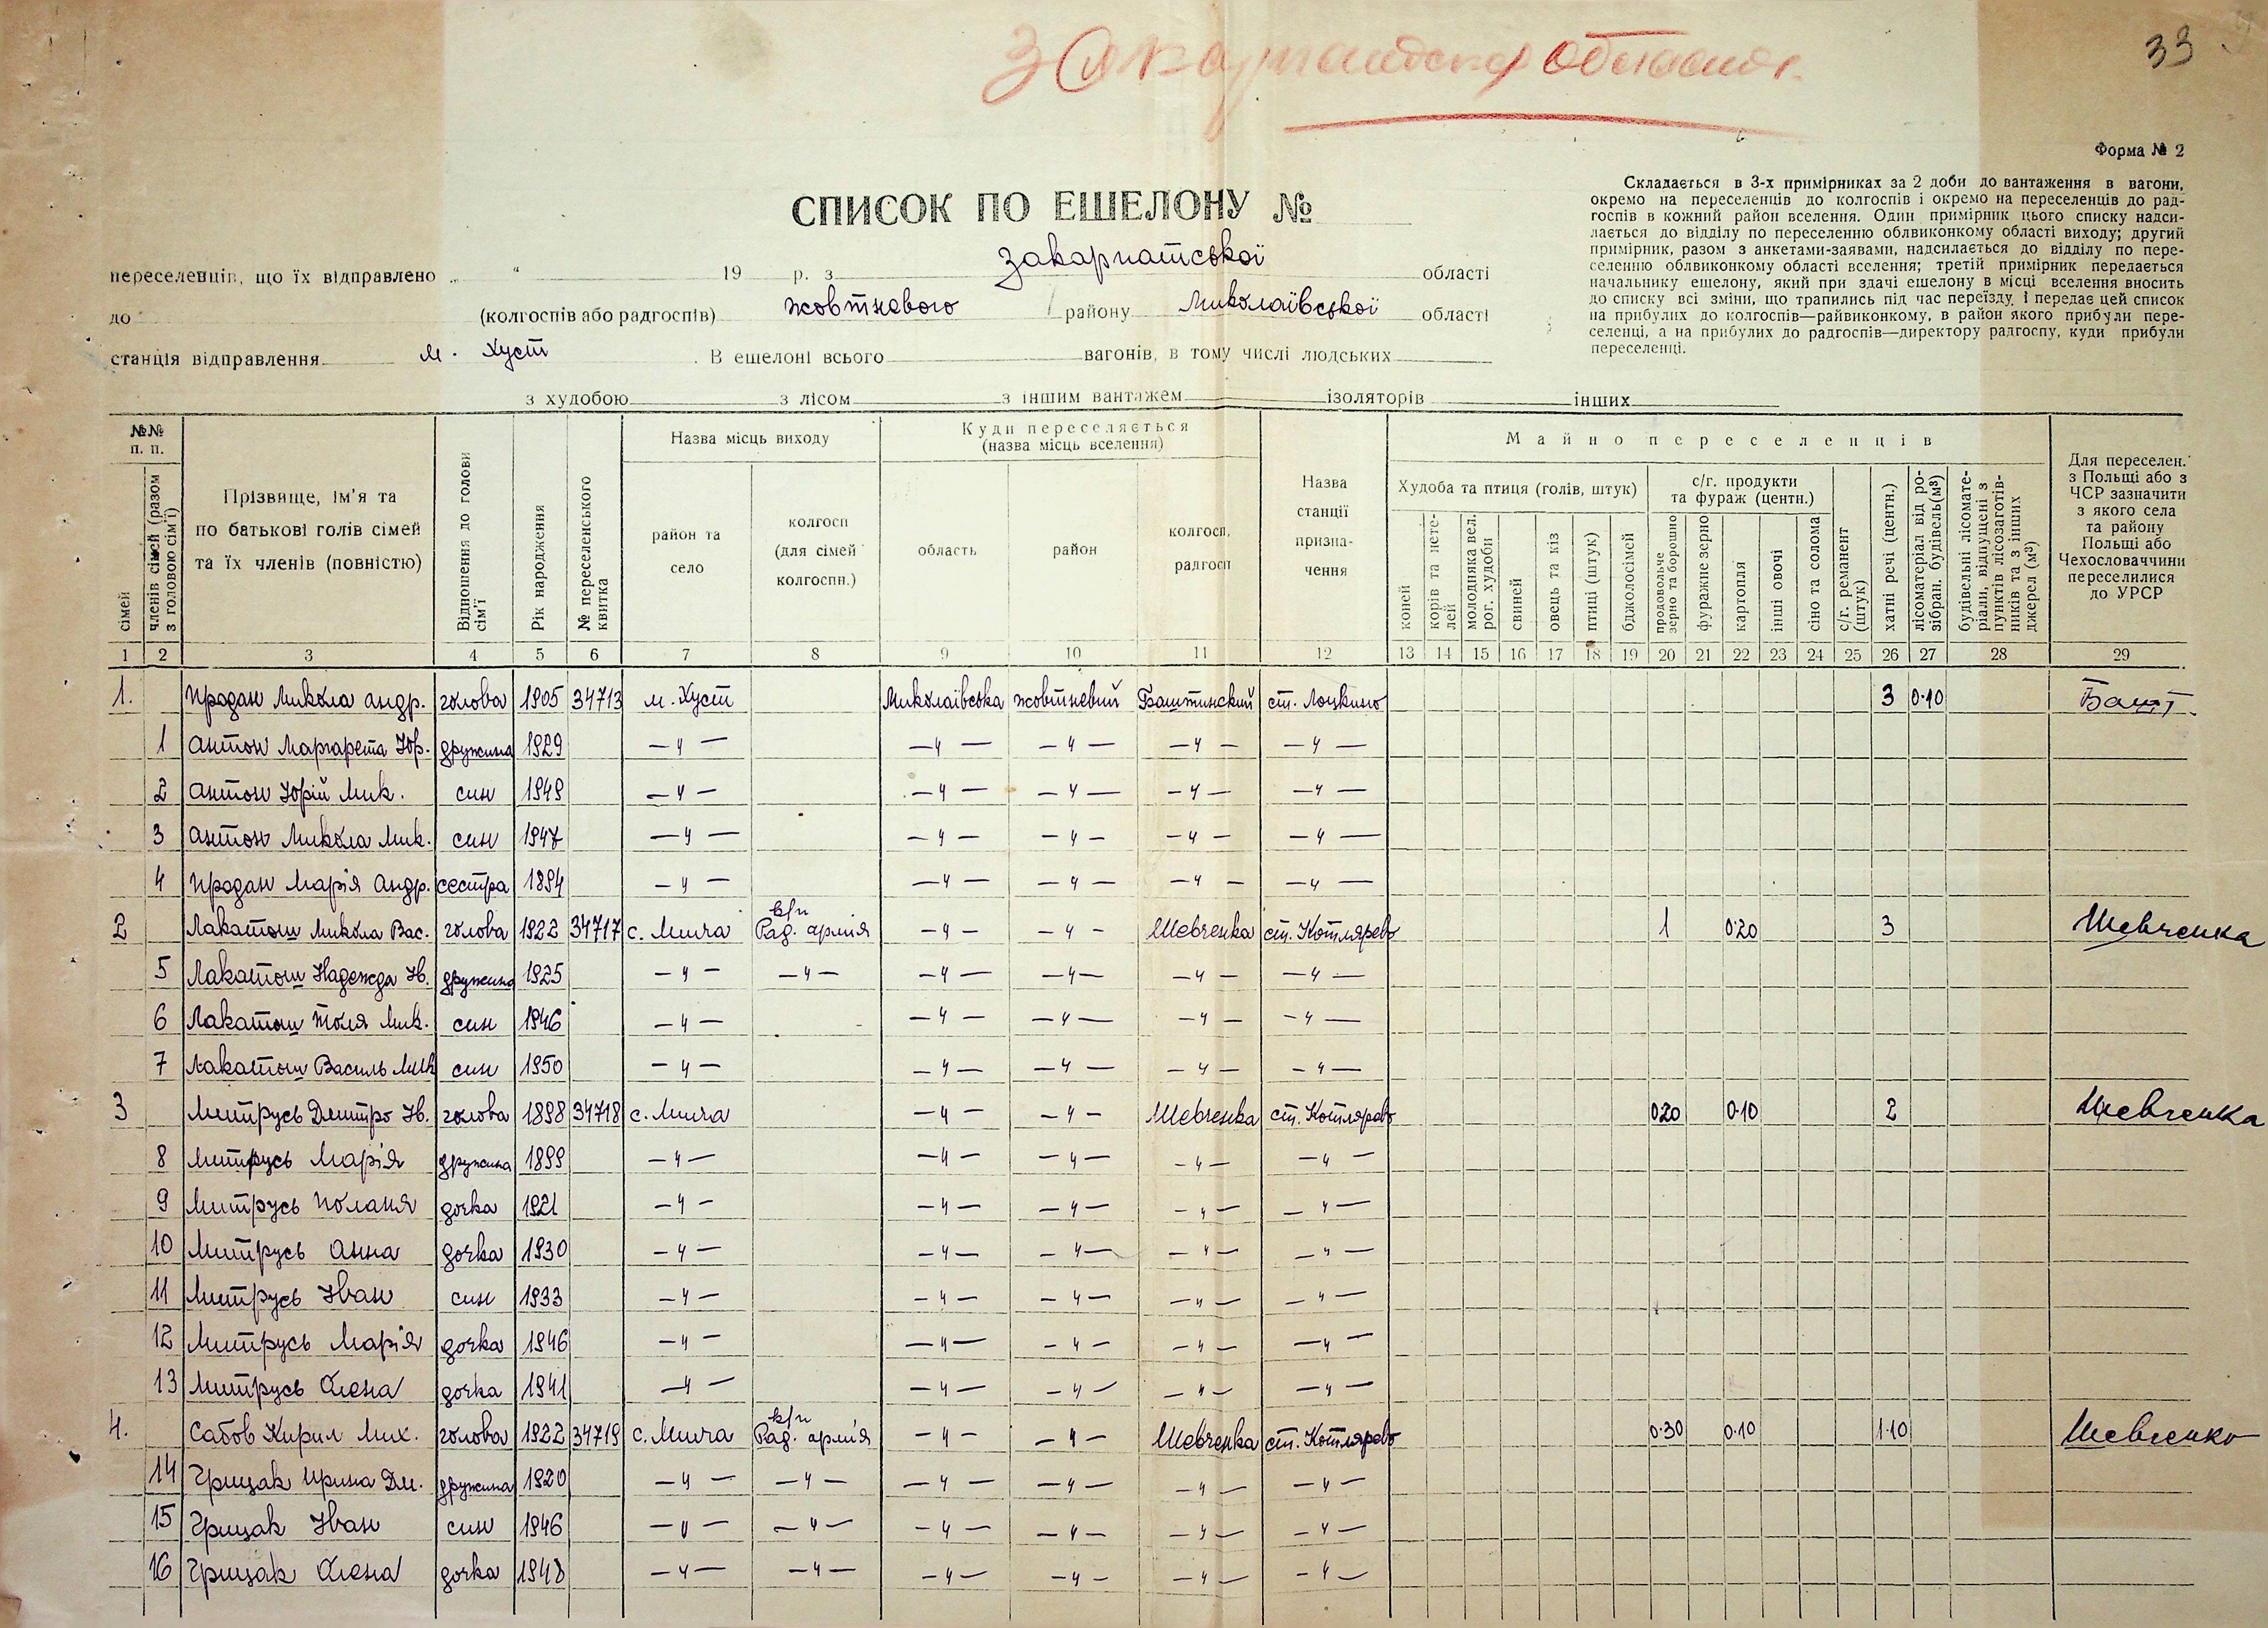 Закарпатська область.
33
Форма № 2
Складається в 3-х примірниках за 2 доби до вантаження в вагони,
окремо на переселенців до колгоспів і окремо на переселенців до рад-
госпів в кожний район вселення. Один примірник цього списку надси-
лається до відділу по переселенню облвиконкому області виходу; другий
примірник, разом з анкетами-заявами, надсилається до відділу по пере-
селенню облвиконкому області вселення; третій примірник передається
начальнику ешелону, який при здачі ешелону в місці вселення вносить
до списку всі зміни, що трапились під час переїзду і передає цей список
на прибулих до колгоспів—райвиконкому, в район якого прибули пере-
селенці, а на прибулих до радгоспів—директору радгоспу, куди прибули
переселенці.
СПИСОК ПО ЕШЕЛОНУ №
переселенців, що їх відправлено „ “ 19 р. з Закарпатської області
до (колгоспів або радгоспів) Жовтневого району Миколаївської області
станція відправлення м. Хуст. В ешелоні всього вагонів, в тому числі людських
з худобою з лісом з іншим вантажем ізоляторів інших
№№ п. п.
сімей
членів сімей (разом з головою сім'ї)
Прізвище, ім'я та
по батькові голів сімей
та їх членів (повністю)
Відношення до голови сім'ї
Рік народження
№ переселенського квитка
Назва місць виходу
район та село
колгосп (для сімей колгоспн.)
Куди переселяється
(назва місць вселення)
область
район
колгосп, радгосп
Назва станції призна-чення
Майно переселенців
Худоба та птиця (голів, штук)
коней
корів та нете-лей
молодняка вел. рог. худоби
свиней
овець та кіз
птиці (штук)
бджолосімей
с/г. продукти та фураж (центн.)
продовольче зерно та борошно
фуражне зерно
картопля
інші овочі
сіно та солома
с/г. реманент (штук)
хатні речі (центн.)
лісоматеріал від ро-зібран. будівель(м³)
будівельні лісомате-ріали, відпущені з пунктів лісозаготів-ників та з інших джерел (м³)
Для переселен. з Польщі або з ЧСР зазначити з якого села та району Польщі або Чехословаччини переселилися до УРСР
1 2 3 4 5 6 7 8 9 10 11 12 13 14 15 16 17 18 19 20 21 22 23 24 25 26 27 28 29
1. Продан Микола Андр. голова 1905 34713 м. Хуст Миколаївська Жовтневий Баштинский ст. Лоцкино 3 0·10 Башт.
1 Антон Маргарета Юр. дружина 1929 —"— —"— —"— —"— —"—
2 Антон Юрій Мик. син 1949 —"— —"— —"— —"— —"—
3 Антон Микола Мик. син 1947 —"— —"— —"— —"— —"—
4 Продан Марія Андр. сестра 1894 —"— —"— —"— —"— —"—
2 Лакатош Микола Вас. голова 1922 34717 с. Мича к/г Рад. армія —"— —"— Шевченка ст. Котлярево 1 0·20 3 Шевченка
5 Лакатош Надежда Ів. дружина 1925 —"— —"— —"— —"— —"— —"—
6 Лакатош Толя Мик. син 1946 —"— —"— —"— —"— —"—
7 Лакатош Василь Мик син 1950 —"— —"— —"— —"— —"—
3 Митрусь Дмитро Ів. голова 1898 34718 с. Мича —"— —"— Шевченка ст. Котлярево 0·20 0·10 2 Шевченка
8 Митрусь Марія дружина 1899 —"— —"— —"— —"— —"—
9 Митрусь Поланя дочка 1921 —"— —"— —"— —"— —"—
10 Митрусь Анна дочка 1930 —"— —"— —"— —"— —"—
11 Митрусь Іван син 1933 —"— —"— —"— —"— —"—
12 Митрусь Марія дочка 1946 —"— —"— —"— —"— —"—
13 Митрусь Олена дочка 1941 —"— —"— —"— —"— —"—
4. Сабов Кирил Мих. голова 1922 34719 с. Мича к/г Рад. армія —"— —"— Шевченка ст. Котлярево 0·30 0·10 1·10 Шевченко
14 Грицак Ирина Дм. дружина 1920 —"— —"— —"— —"— —"— —"—
15 Грицак Іван син 1946 —"— —"— —"— —"— —"— —"—
16 Грицак Олена дочка 1948 —"— —"— —"— —"— —"— —"—